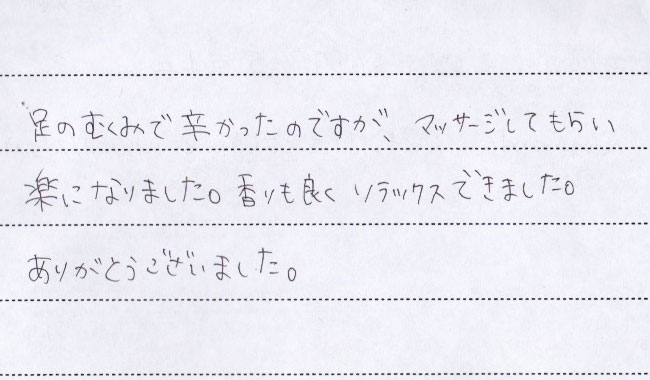 足のむくみで辛かったのですが、マッサージしてもらい
楽になりました。香りも良くリラックスできました。
ありがとうございました。